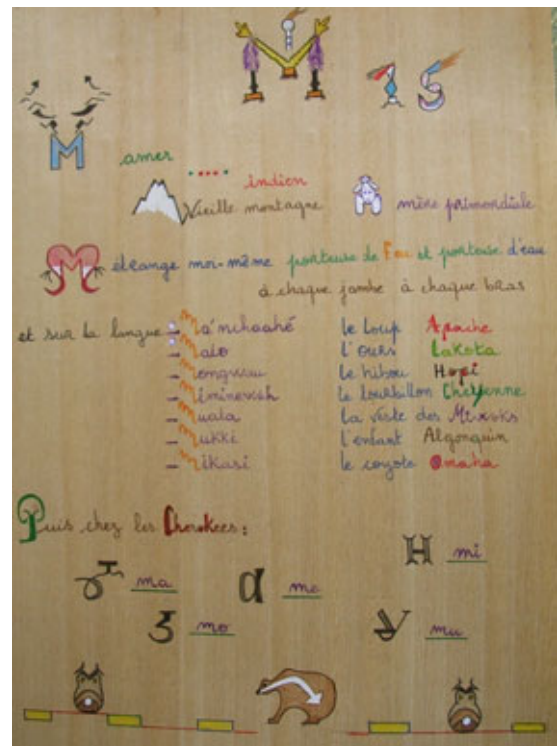 M 15
M amer
indien
Vieille montagne mère primordiale
M étrange moi-même porteuse de Feu et porteuse d'eau
à chaque jambe à chaque bras
et sur la langue - Ma'nchaahé le loup Apache
- Mato l'ours Lakota
- Mongwau le hibou Hopi
- Miminewish le tourbillon Cheyenne
- Muata la veste des
- Mukki l'enfant Algonquin
- Mikasi le coyote Omaha
Puis chez les Cherokees :
mi
ma me
mo mu